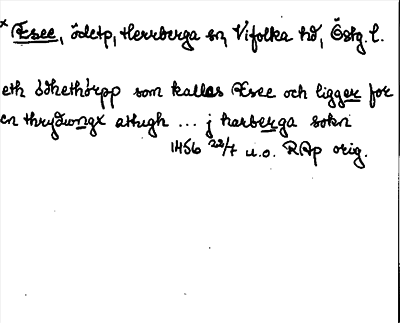 × Æsee, ödetp, Herrberga sn, Vifolka hd, Östg. l.
eth ödhethorpp som kallas Æsee och ligger for
en thrydiungx athugh ... j harberga sokn
1456 22/7 u.o. RAp orig.